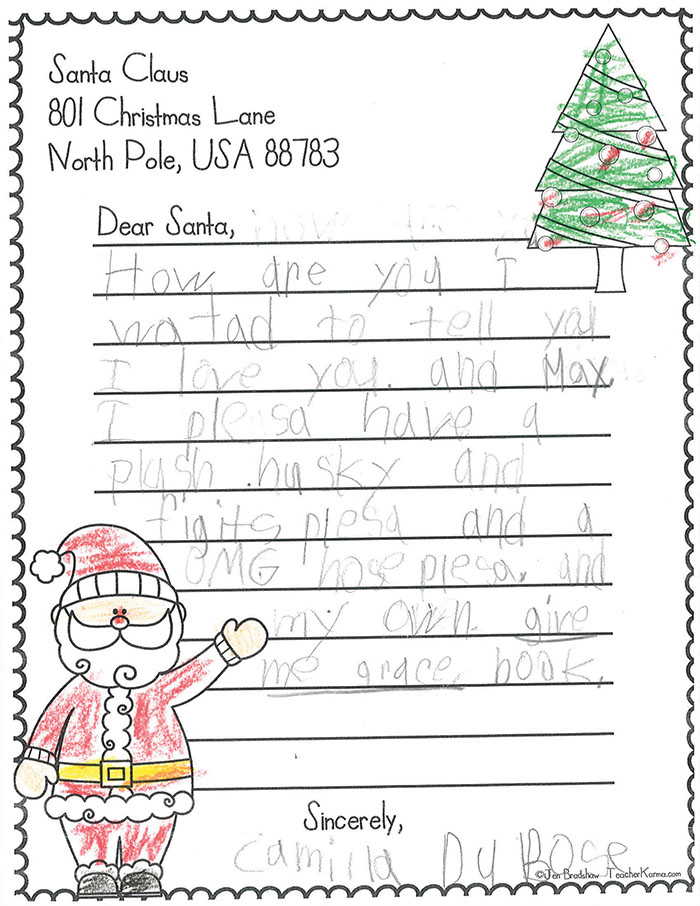 Santa Claus
801 Christmas Lane
North Pole, USA 88783
Dear Santa,
How are you I
watad to tell yal
I love you. and Max.
I plesa have a
plush husky and
figits plesa and a
OMG hose plesa. and
my own give
me grace. book.
Sincerely,
Camilla Du Bose
©Jen Bradshaw TeacherKarma.com